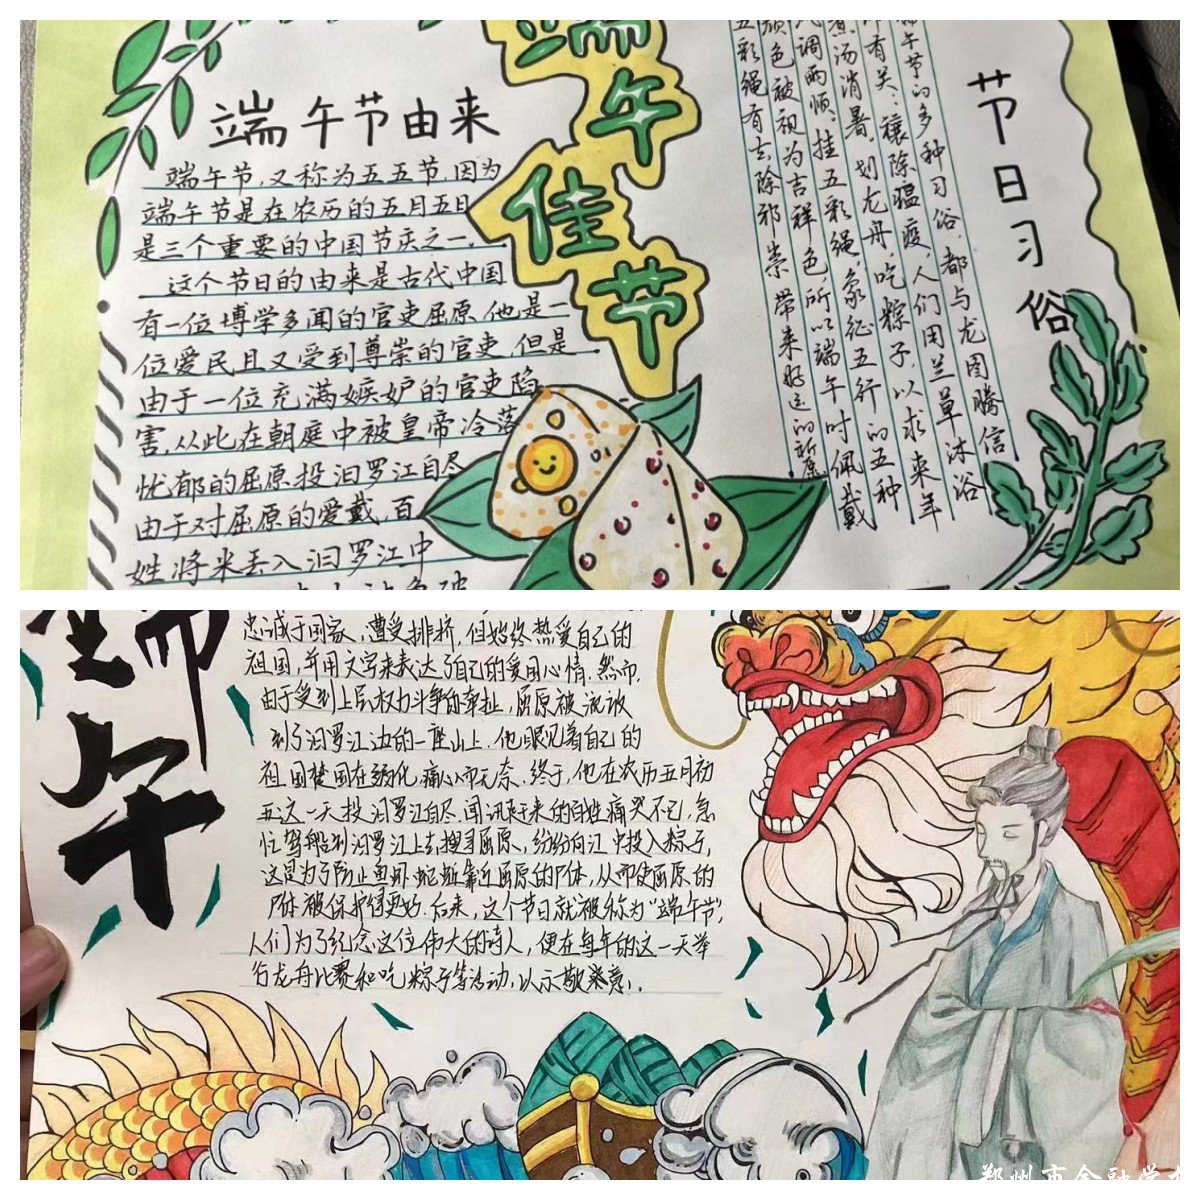 端午佳节
端午节由来
端午节,又称为五五节,因为
端午节是在农历的五月五日
是三个重要的中国节庆之一.
这个节日的由来是古代中国
有一位博学多闻的官吏屈原,他是一
位爱民且又受到尊崇的官吏,但是
由于一位充满嫉妒的官吏陷
害,从此在朝庭中被皇帝冷落
忧郁的屈原投汨罗江自尽
由于对屈原的爱戴,百
姓将米丢入汨罗江中
节日习俗
午节的多种习俗,都与龙图腾信
有关:禳除瘟疫,人们用兰草沐浴
汤消暑,划龙舟,吃粽子,以求来年
调雨顺。挂五彩绳,象征五行的五种
颜色被视为吉祥色所以端午时佩戴
五彩绳有去除邪祟带来好运的祈愿
端午
忠诚于国家,遭受排挤,但始终热爱自己的
祖国,并用文字来表达了自己的爱国心情.然而,
由于受到上层权力斗争的牵扯,屈原被流放
到了汨罗江边的一座山上.他眼见着自己的
祖国楚国在弱化,痛心而无奈.终于,他在农历五月初
五这一天投汨罗江自尽.闻讯赶来的百姓痛哭不已,急
忙驾船到汨罗江上去搜寻屈原,纷纷向江中投入粽子,
这是为了防止鱼虾蛇蚯靠近屈原的尸体,从而使屈原的
尸体被保护得更好.后来,这个节日就被称为"端午节",
人们为了纪念这位伟大的诗人,便在每年的这一天举
行龙舟比赛和吃粽子等活动,以示敬意.
郑州市金融学校